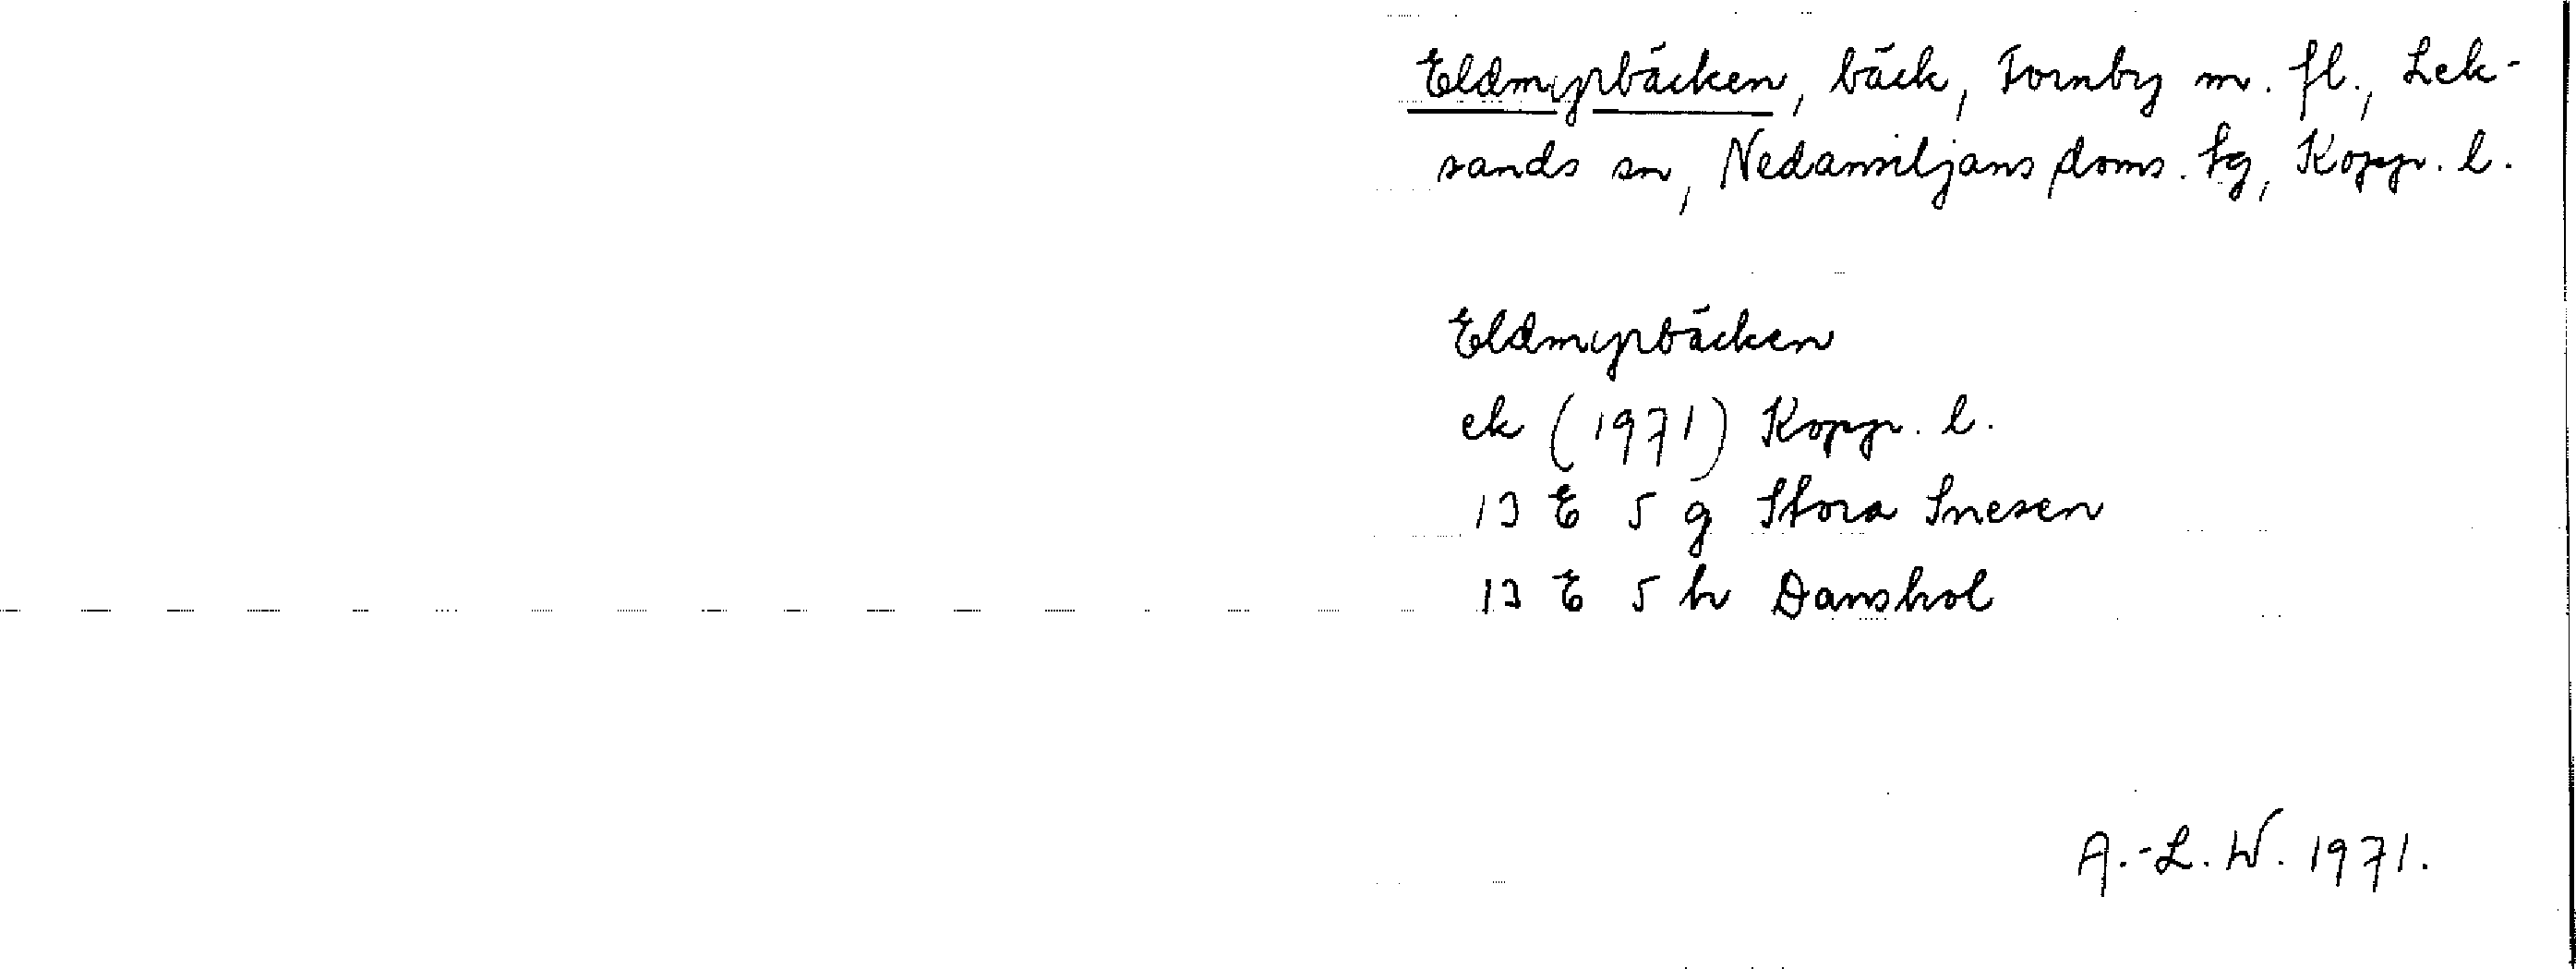 Eldmyrbäcken, bäck, Tornby m. fl., Lek-
sands sn, Nedansiljans doms. tg, Kopp. l.
Eldmyrbäcken
ek (1971) Kopp. l.
13 E 5 g Stora Snesen
13 E 5 h Danshol
A.-L. W. 1971.